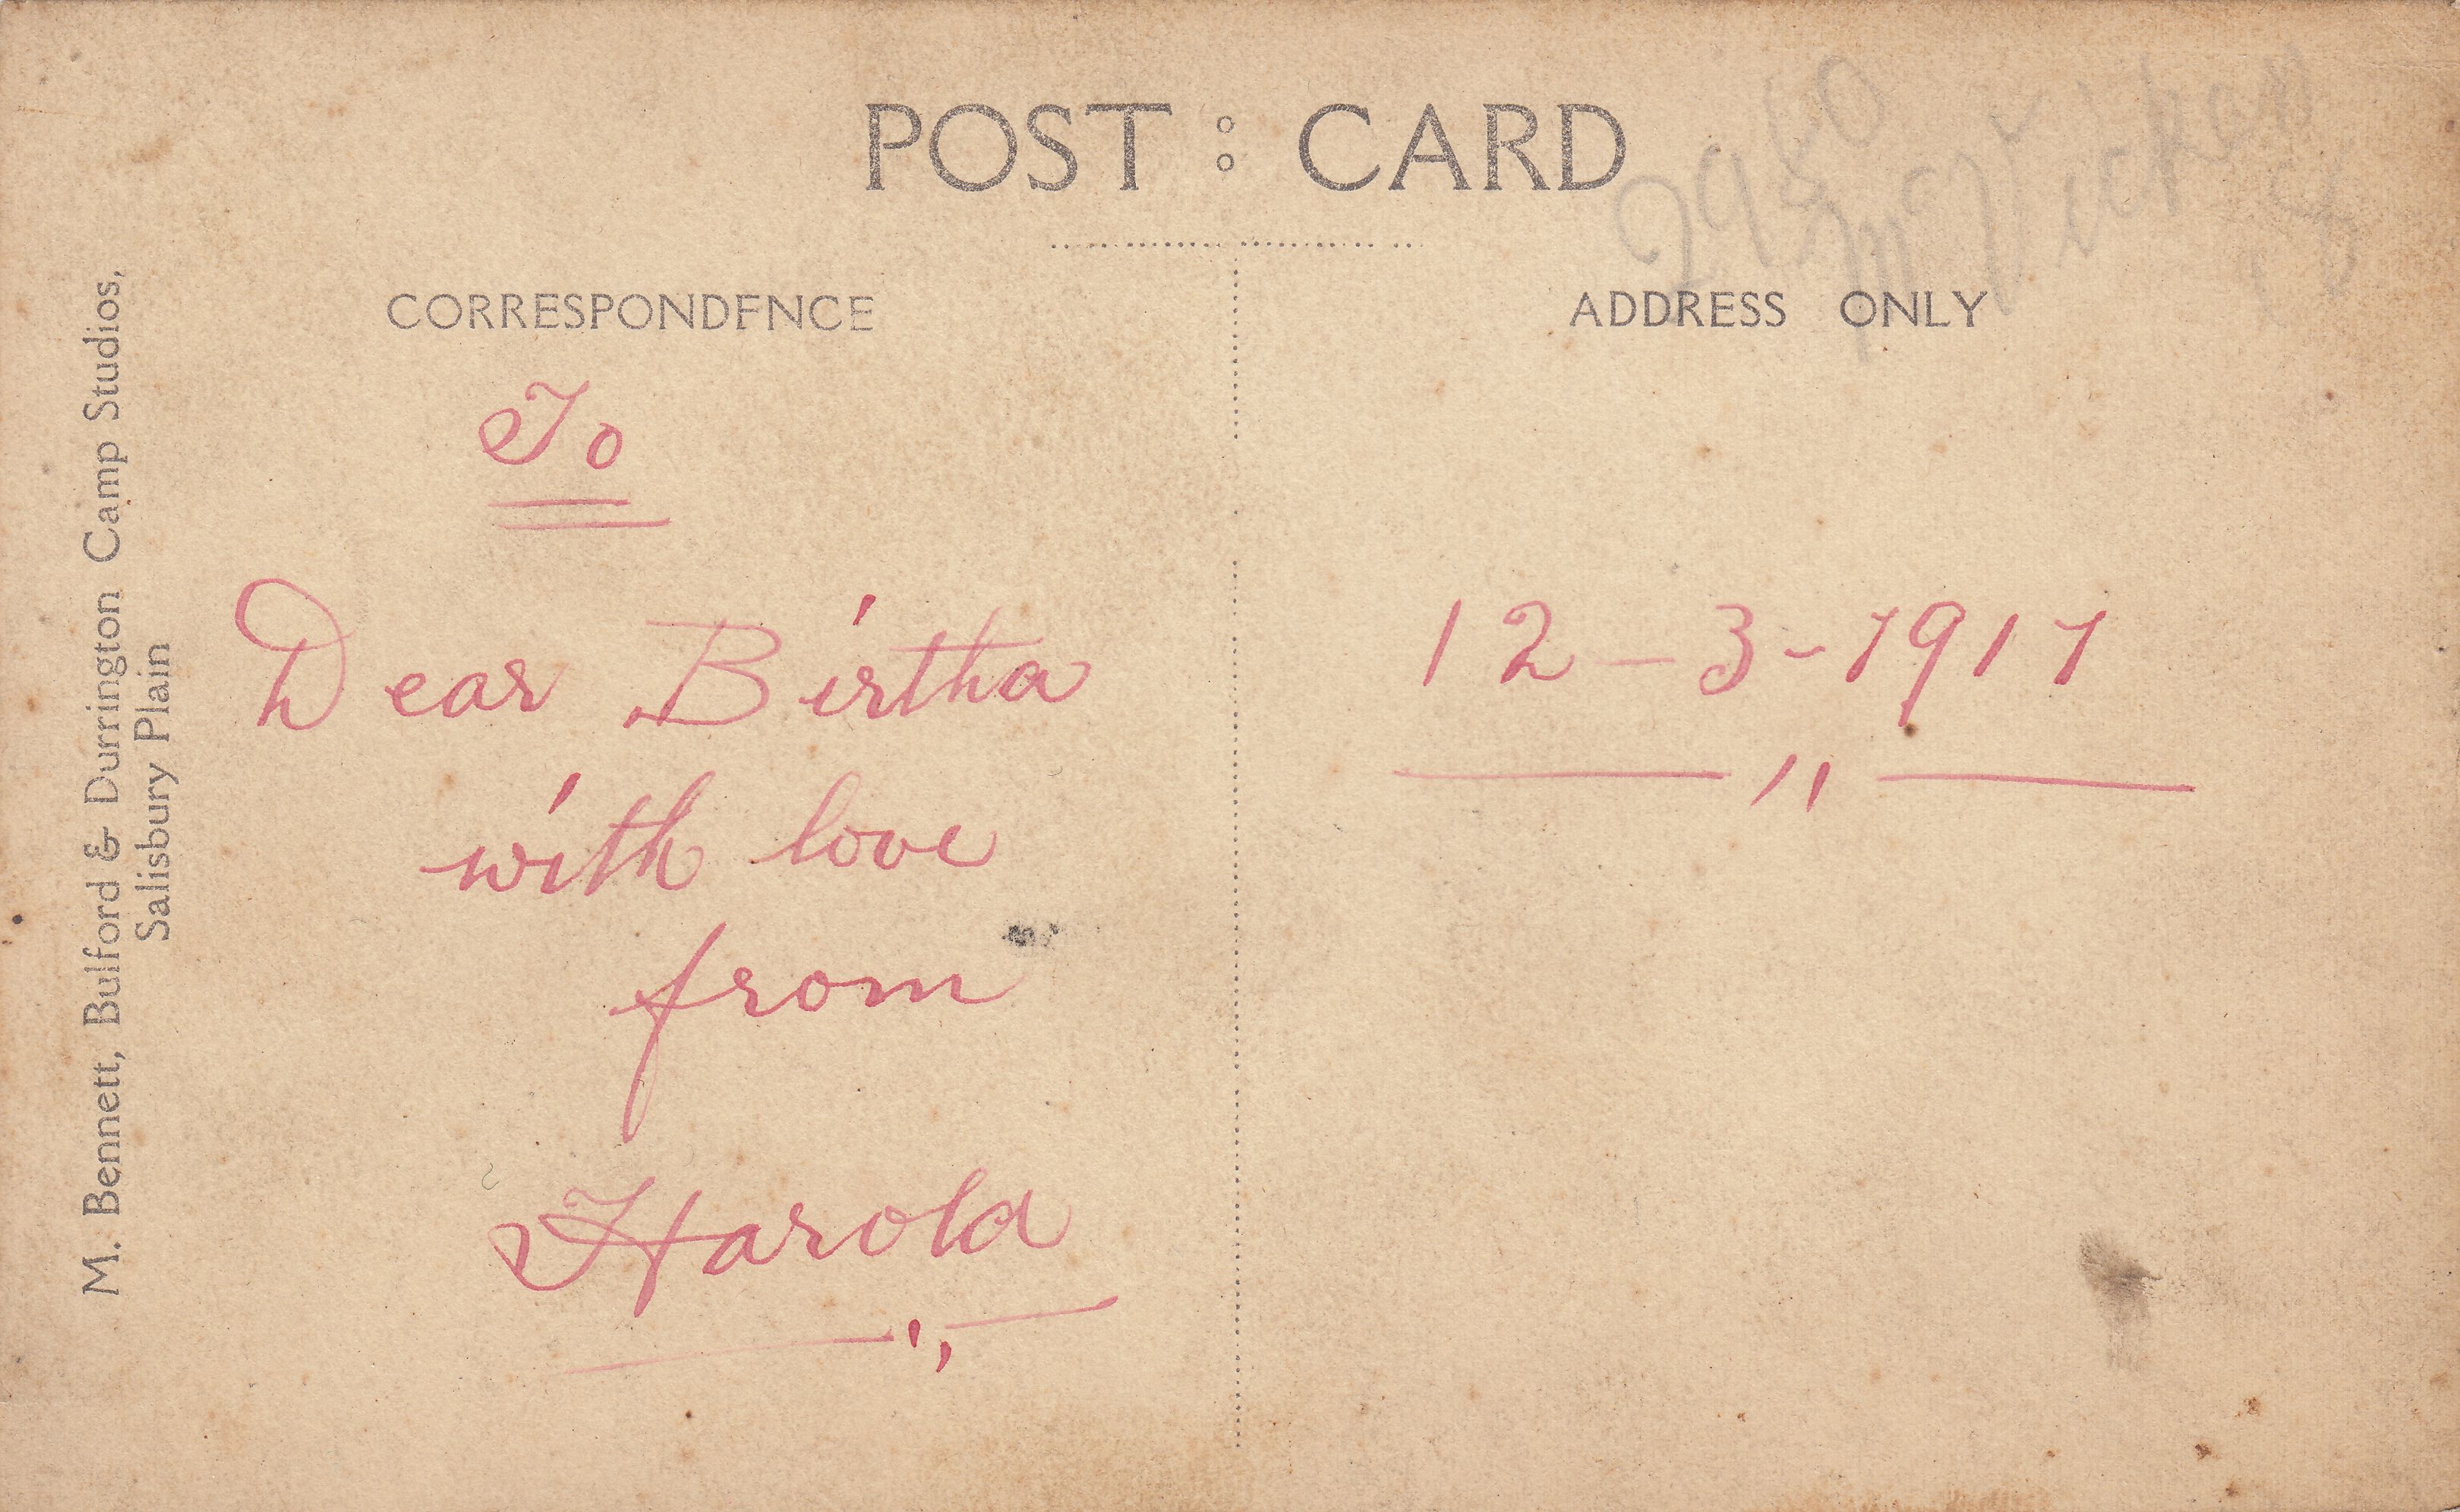 POST : CARD
CORRESPONDENCE
ADDRESS ONLY
To
Dear Birtha
with love
from
Harold
12 - 3 - 1917
M. Bennett, Bulford & Durrington Camp Studios,
Salisbury Plain